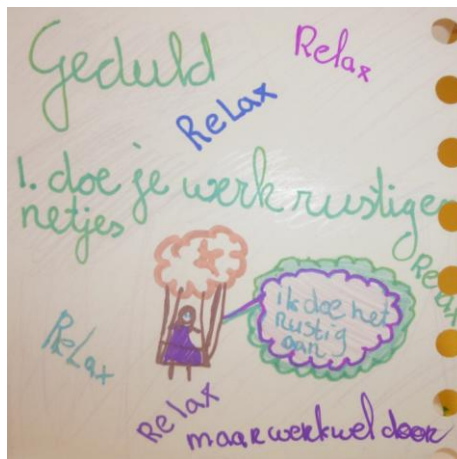 Geduld
Relax
Relax
1. doe je werk rustig en
netjes
Relax
ik doe het
rustig
aan
Relax
Relax
maar werk wel door